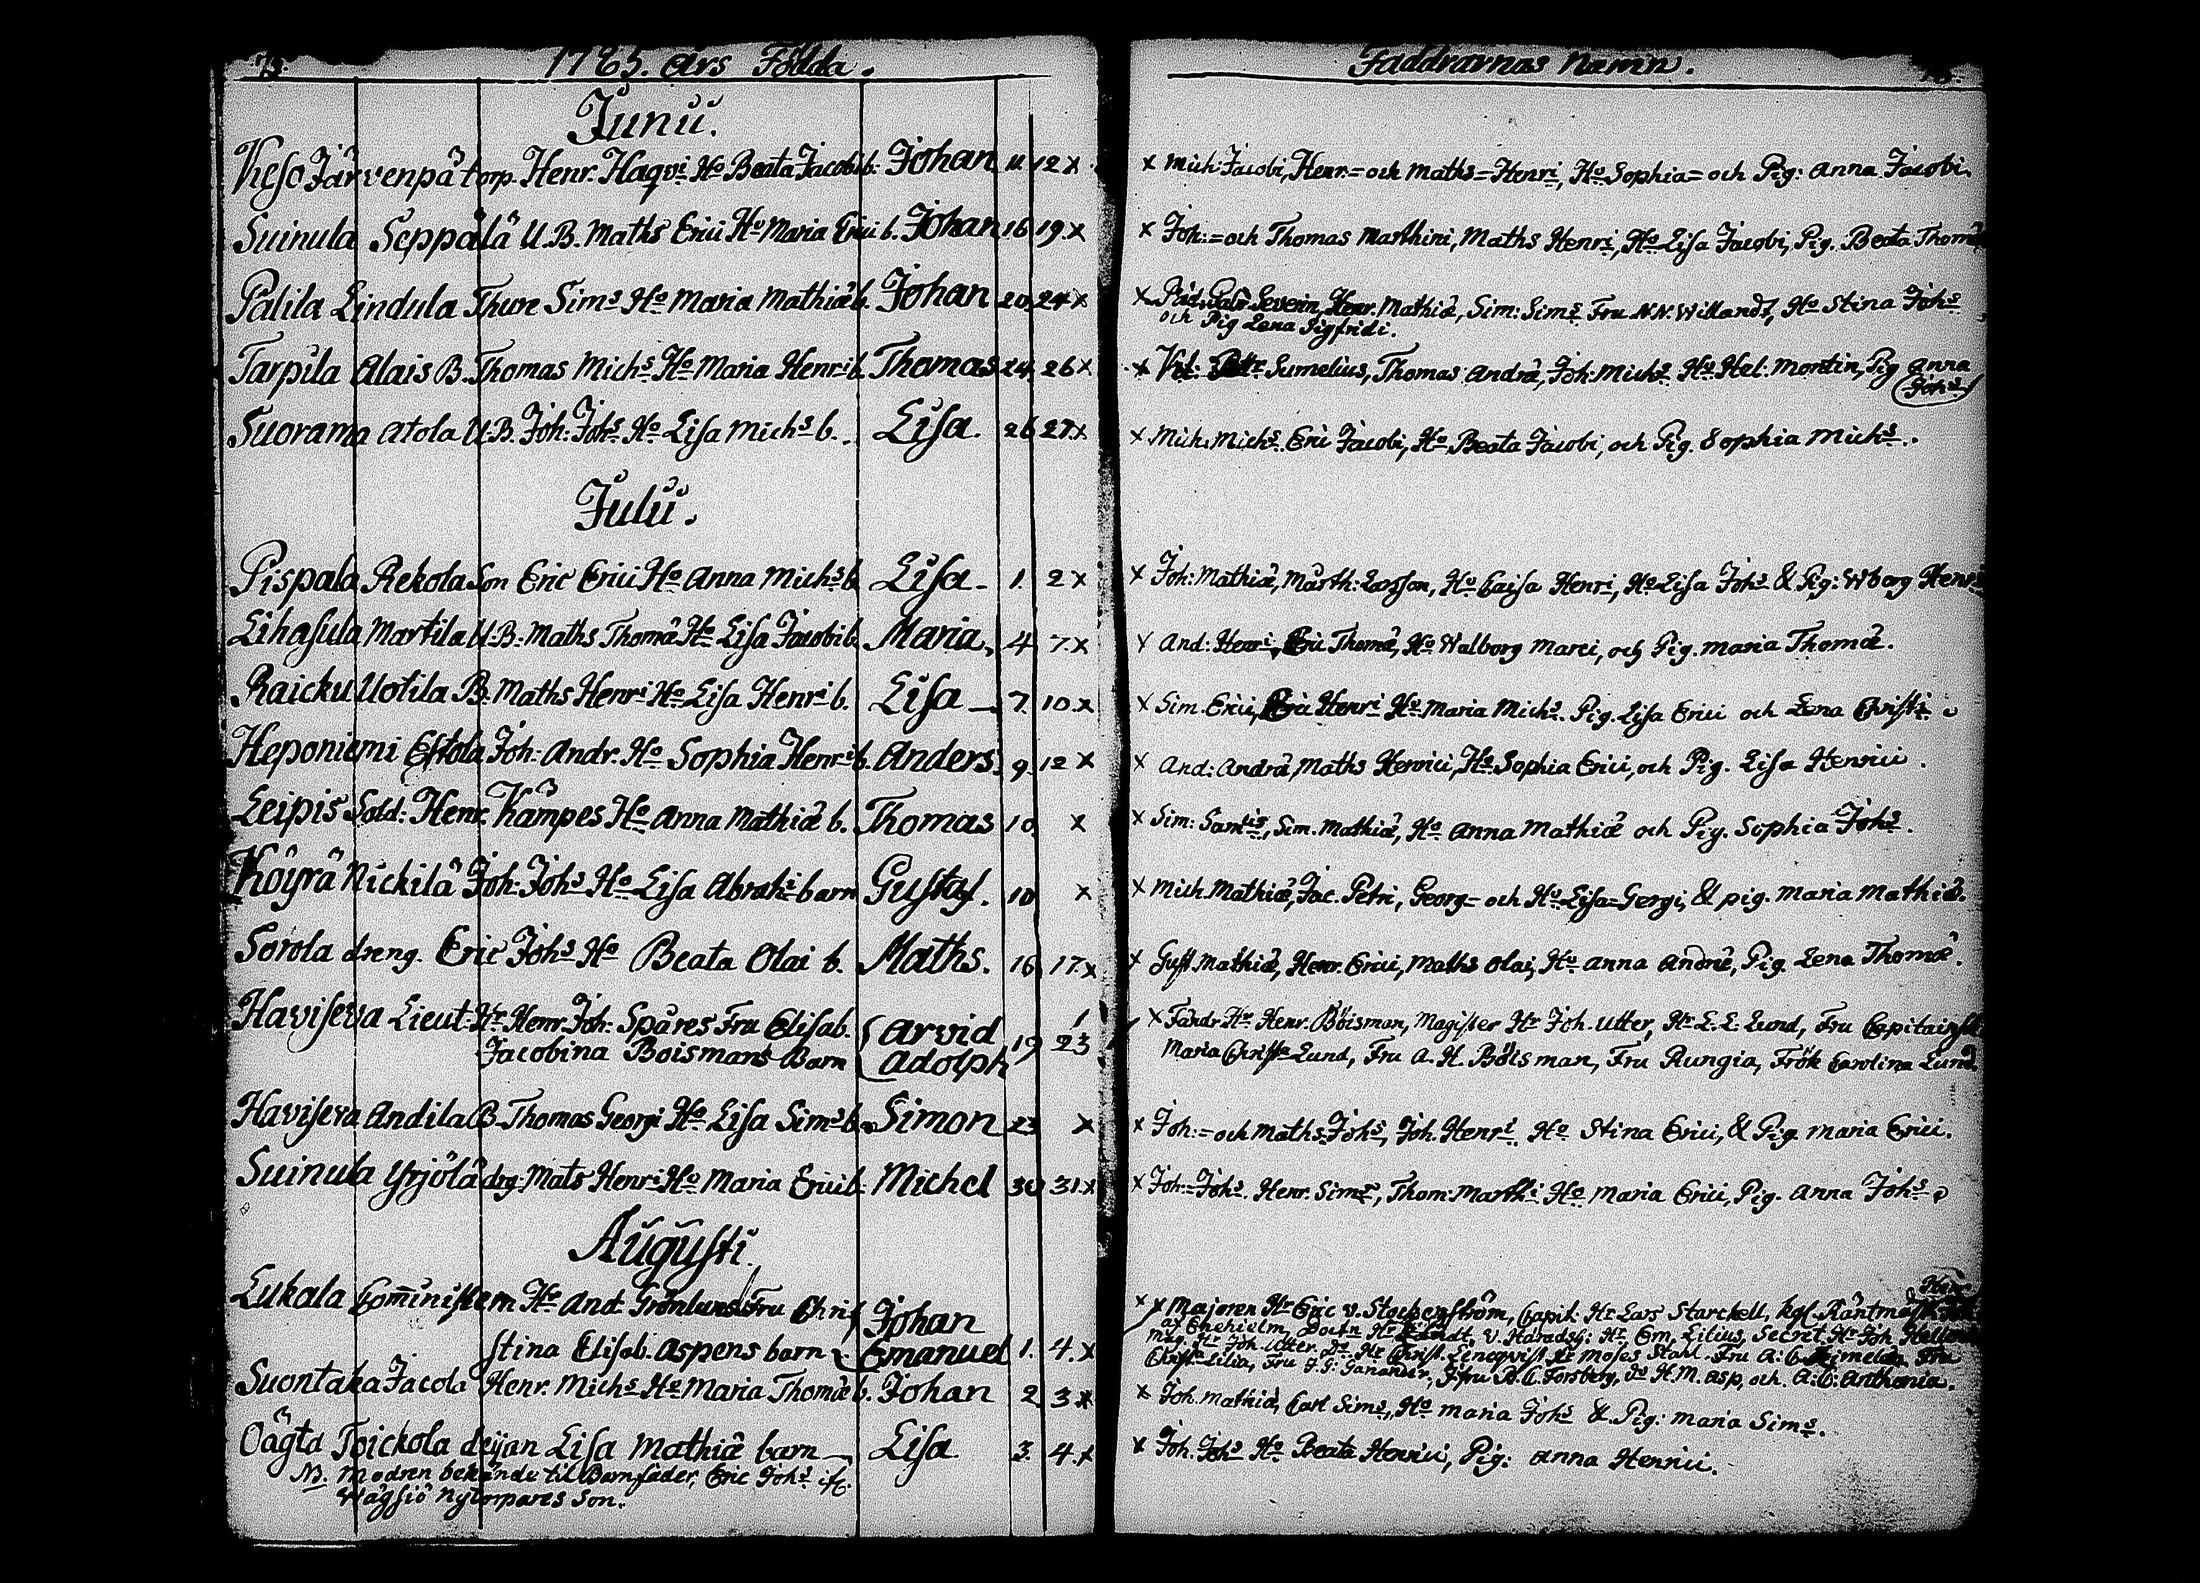 73. 1785. års Födda.
Junii.
Keso Järvenpä torp. Henr. Haqvi Ho Beata Jacobi b. Johan 11 12 x
Suinula Seppälä U.B. Maths Erici Ho Maria Erici b. Johan 16 19 x
Palila Lindula Thure Sims Ho Maria Mathiæ b. Johan 20 24 x
Tarpila Alais B. Thomas Michs Ho Maria Henri b. Thomas 24 26 x
Suorama Atola U.B. Joh: Johs Ho Lisa Michs b. Lisa. 26 27. x
Julii.
Pispala Rekola Son Eric Erici Ho Anna Michs b. Lisa 1. 2 x
Lihasula Martila U.B. Maths Thomæ Ho Lisa Jacobi b. Maria, 4 7. x
Raicku Uotila B. Maths Henri Ho Lisa Henri b. Lisa 7. 10. x
Heponiemi Eskola Joh: Andr. Ho Sophia Henri b. Anders. 9. 12 x
Leipis Sold: Henr. Kämpes Ho Anna Mathiæ b. Thomas 10 x
Köyrä Nickilä Joh: Johs Ho Lisa Abrahi barn Gustaf. 10 x
Sorola dreng. Eric Johs Ho Beata Olai b. Maths. 16 17. x
Haviseva Lieut: Hr Henr. Joh: Spåres Fru Elisab. Arvid
Jacobina Boismans Barn Adolph 19 23
Haviseva Andila B. Thomas Georgi Ho Lisa Sims b. Simon 23 x
Suinula Yrjölä drg. Mats Henri Ho Maria Erici b. Michel 30 31. x
Augusti.
Lukala Comministern Hr And. Grönlunds Fru Chri Johan
stina Elisab. Aspens barn Emanuel 1. 4. x
Suontaka Jacola Henr. Michs Ho Maria Thomæ b. Johan 2 3 x
Oägta Toickola deijan Lisa Mathiæ barn Lisa 3. 4. x
NB. Modren bekände til Barnfader, Eric Johs
Wägsiö Nytorpares Son.
Faddrarnas Namn. 73.
x Mich: Jacobi, Henr. = och Maths = Henri, Ho Sophia = och Pig: Anna Jacobi.
x Joh: = och Thomas Marthini, Maths Henri, Ho Lisa Jacobi, Pig. Beata Thomæ
x Gabr Severin, Henr. Mathiæ, Sim: Sims Fru N.N. Willandt, Ho Stina Johs
och Pig Lena Sigfridi.
x Sumelius, Thomas Andræ, Joh. Michs Ho Hel. Montin, Pig Anna
Johs
x Mich. Michs Eric Jacobi, Ho Beata Jacobi, och Pig. Sophia Michs.
x Joh: Mathiæ, Marth: Larsson, Ho Caisa Henri, Ho Lisa Johs & Pig: Wborg Henri
x And: Henri, Eric Thomæ, Ho Walborg Marci, och Pig. Maria Thomæ.
x Sim. Erici, Erici Henri Ho Maria Michs. Pig. Lisa Erici och Lena Christi
x And: Andræ Maths Henrici, Ho Sophia Erici, och Pig. Lisa Henrici.
x Sim: Samlis, Sim. Mathiæ, Ho Anna Mathiæ och Pig. Sophia Johs.
x Mich. Mathiæ, Jac. Petri, Georg = och Ho Lisa = Gergi, & pig. Maria Mathiæ.
x Gust. Mathiæ, Henr. Erici, Maths Olai, Ho Anna Andræ, Pig. Lena Thomæ.
x Fändr. Hr Henr. Böisman, Magister Hr Joh. Utter, Hr L. E. Lund, Fru Capitainska
Maria Christa Lund, Fru A. H. Böisman, Fru Rungia, Frök Carolina Lund.
x Joh: = och Maths. Johs, Joh. Henri. Ho Stina Erici, & Pig. Maria Erici.
x Joh: Johs. Henr. Sims, Thom: Marthi Ho Maria Erici, Pig. Anna Johs
Henr
x x Majoren Hr Eric v. Stockenström, Capit. Hr Lars Starckell, kgl. Räntmäst.
af Enehielm, Doctn Hr V. Häradsh: Hr Em. Lilius, Secret. Hr Joh Hellen
Mag. Hr Joh. Utter, Do Hr Christ. Leneqvist Hr Moses Stahl. Fru A: C. Fru
Christ. Lilia, Fru J. G: Ganander, Jfru A. C. Forsberg, Do H. M. Asp, och. A: C: Anthonia.
x Joh. Mathiæ, Carl Sims, Ho Maria Johs & Pig: Maria Sims.
x Joh. Johs Ho Beata Henrici, Pig: Anna Henrici.